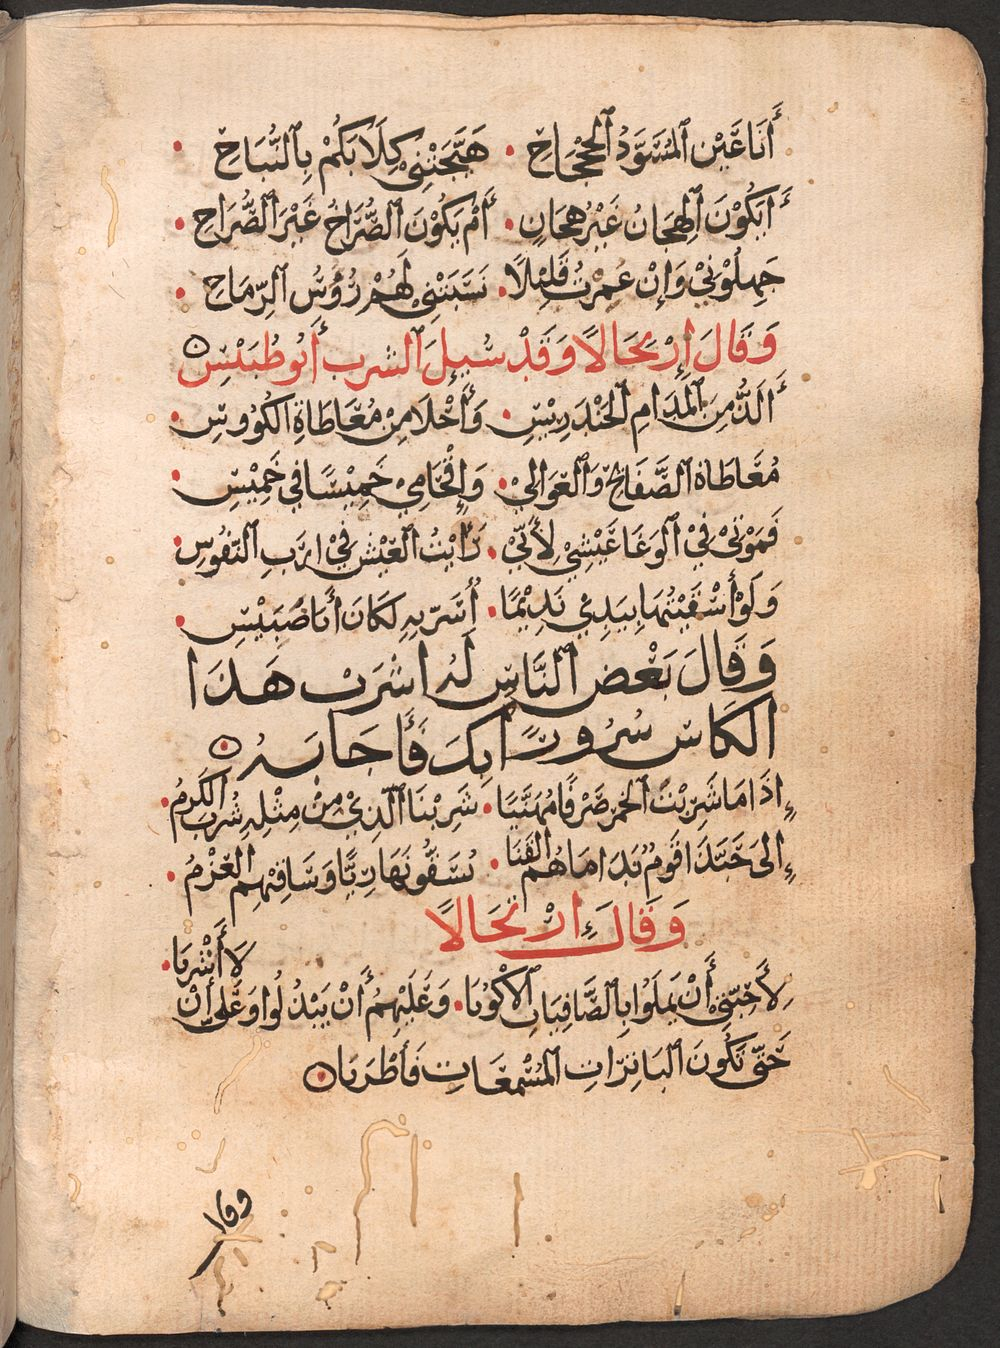 أَنَا عَيْن ٱلمُسَوَّدُ ٱلجَحْجَاحِ • هَيَّجَتْنِيْ كِلَابَكُمْ بِٱلنُّبَاحِ •
أَيَكُوْنَ ٱلهِجَانُ غَيْرُ هِجَانٍ • أَمْ يَكُوْنَ ٱلصُّرَاحُ غَيْرَ ٱلصُّرَاحِ •
جَهِلُوْنِيْ وَإِنْ عمرتُ قَلِيْلًا • نَسَبَتْنِيْ لَهُمْ رُؤُسُ ٱلرِّمَاحِ •
وَقَالَ إِرْتِجَالًا وَقَدْ سُيِٕلَ ٱلشرب أَبوُ ظُبَيْسٍ ه
أَلَذُّ مِنَ ٱلمُدَامِ ٱلخَنْدَرِيْسِ • وَأَحْلَا مِنْ مُعَاطَاةِ الكُوُوسِ •
مُعَاطَاة ٱلصَّفَائِحِ وَٱلعَوَالِيْ • وَإِقْحَامِيْ خَمِيْسًا فِي خَمِيْسِ •
فَمَوْتِيْ فِيْ ٱلوَغَا عَيْشِيْ لِأَنِّيْ • رَأَيْتُ ٱلعَيْش فِيْ ارَبِ ٱلنُّفُوْسِ •
وَلَوْ أُسْقَيْتُهَا بِيَدِيْ نَدِيْمًا • أُسَرّ بِهِ لَكَانَ أَبَا ضُبَيْسِ •
وَقَالَ بَعْض ٱلنَّاسِ لَهُ اشرَبْ هَذَا
الكَاس سُرُورًا بِكَ فَأَجَابَهُ ه
إِذَا مَا شَرِبْتَ ٱلخَمر صَرْفًا مُهَنَّيَا • شَرِبْنَا ٱلَّذِيْ مِنْ مِثْلِهِ شُرِبَ الكَرمُ •
إِلىَ حَبَّذَا قَومٌ نَدَامَاهُم القَنَا • يُسَقُّونَهَا رِيًّا وَسَاقِيْهِمِ العَزْمُ •
وَقَالَ إِرْتِجَالًا
لِأَحِبَّتِيْ أَنْ يَملَوُا بِالصَّافِيَاتِ ٱلأَكْوُبَا • وَعَلَيْهِمُ أَنْ يَبْذُلُوا وَعَلَيَّ أنْ لَا أَشْرَبَا •
حَتَّى تَكُونَ ٱلبَاتِرَات المُسْمِعَاتِ فَأَطْرَبَا ه
وقال